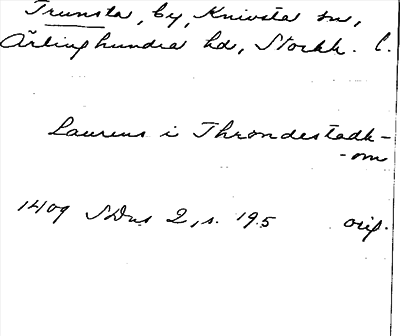 Trunsta, by, Knivsta sn,
Ärlinghundra hd, Stockh. l.
Laurens i Throndestadh-
-om
1409 SDns 2, s. 195 orig.